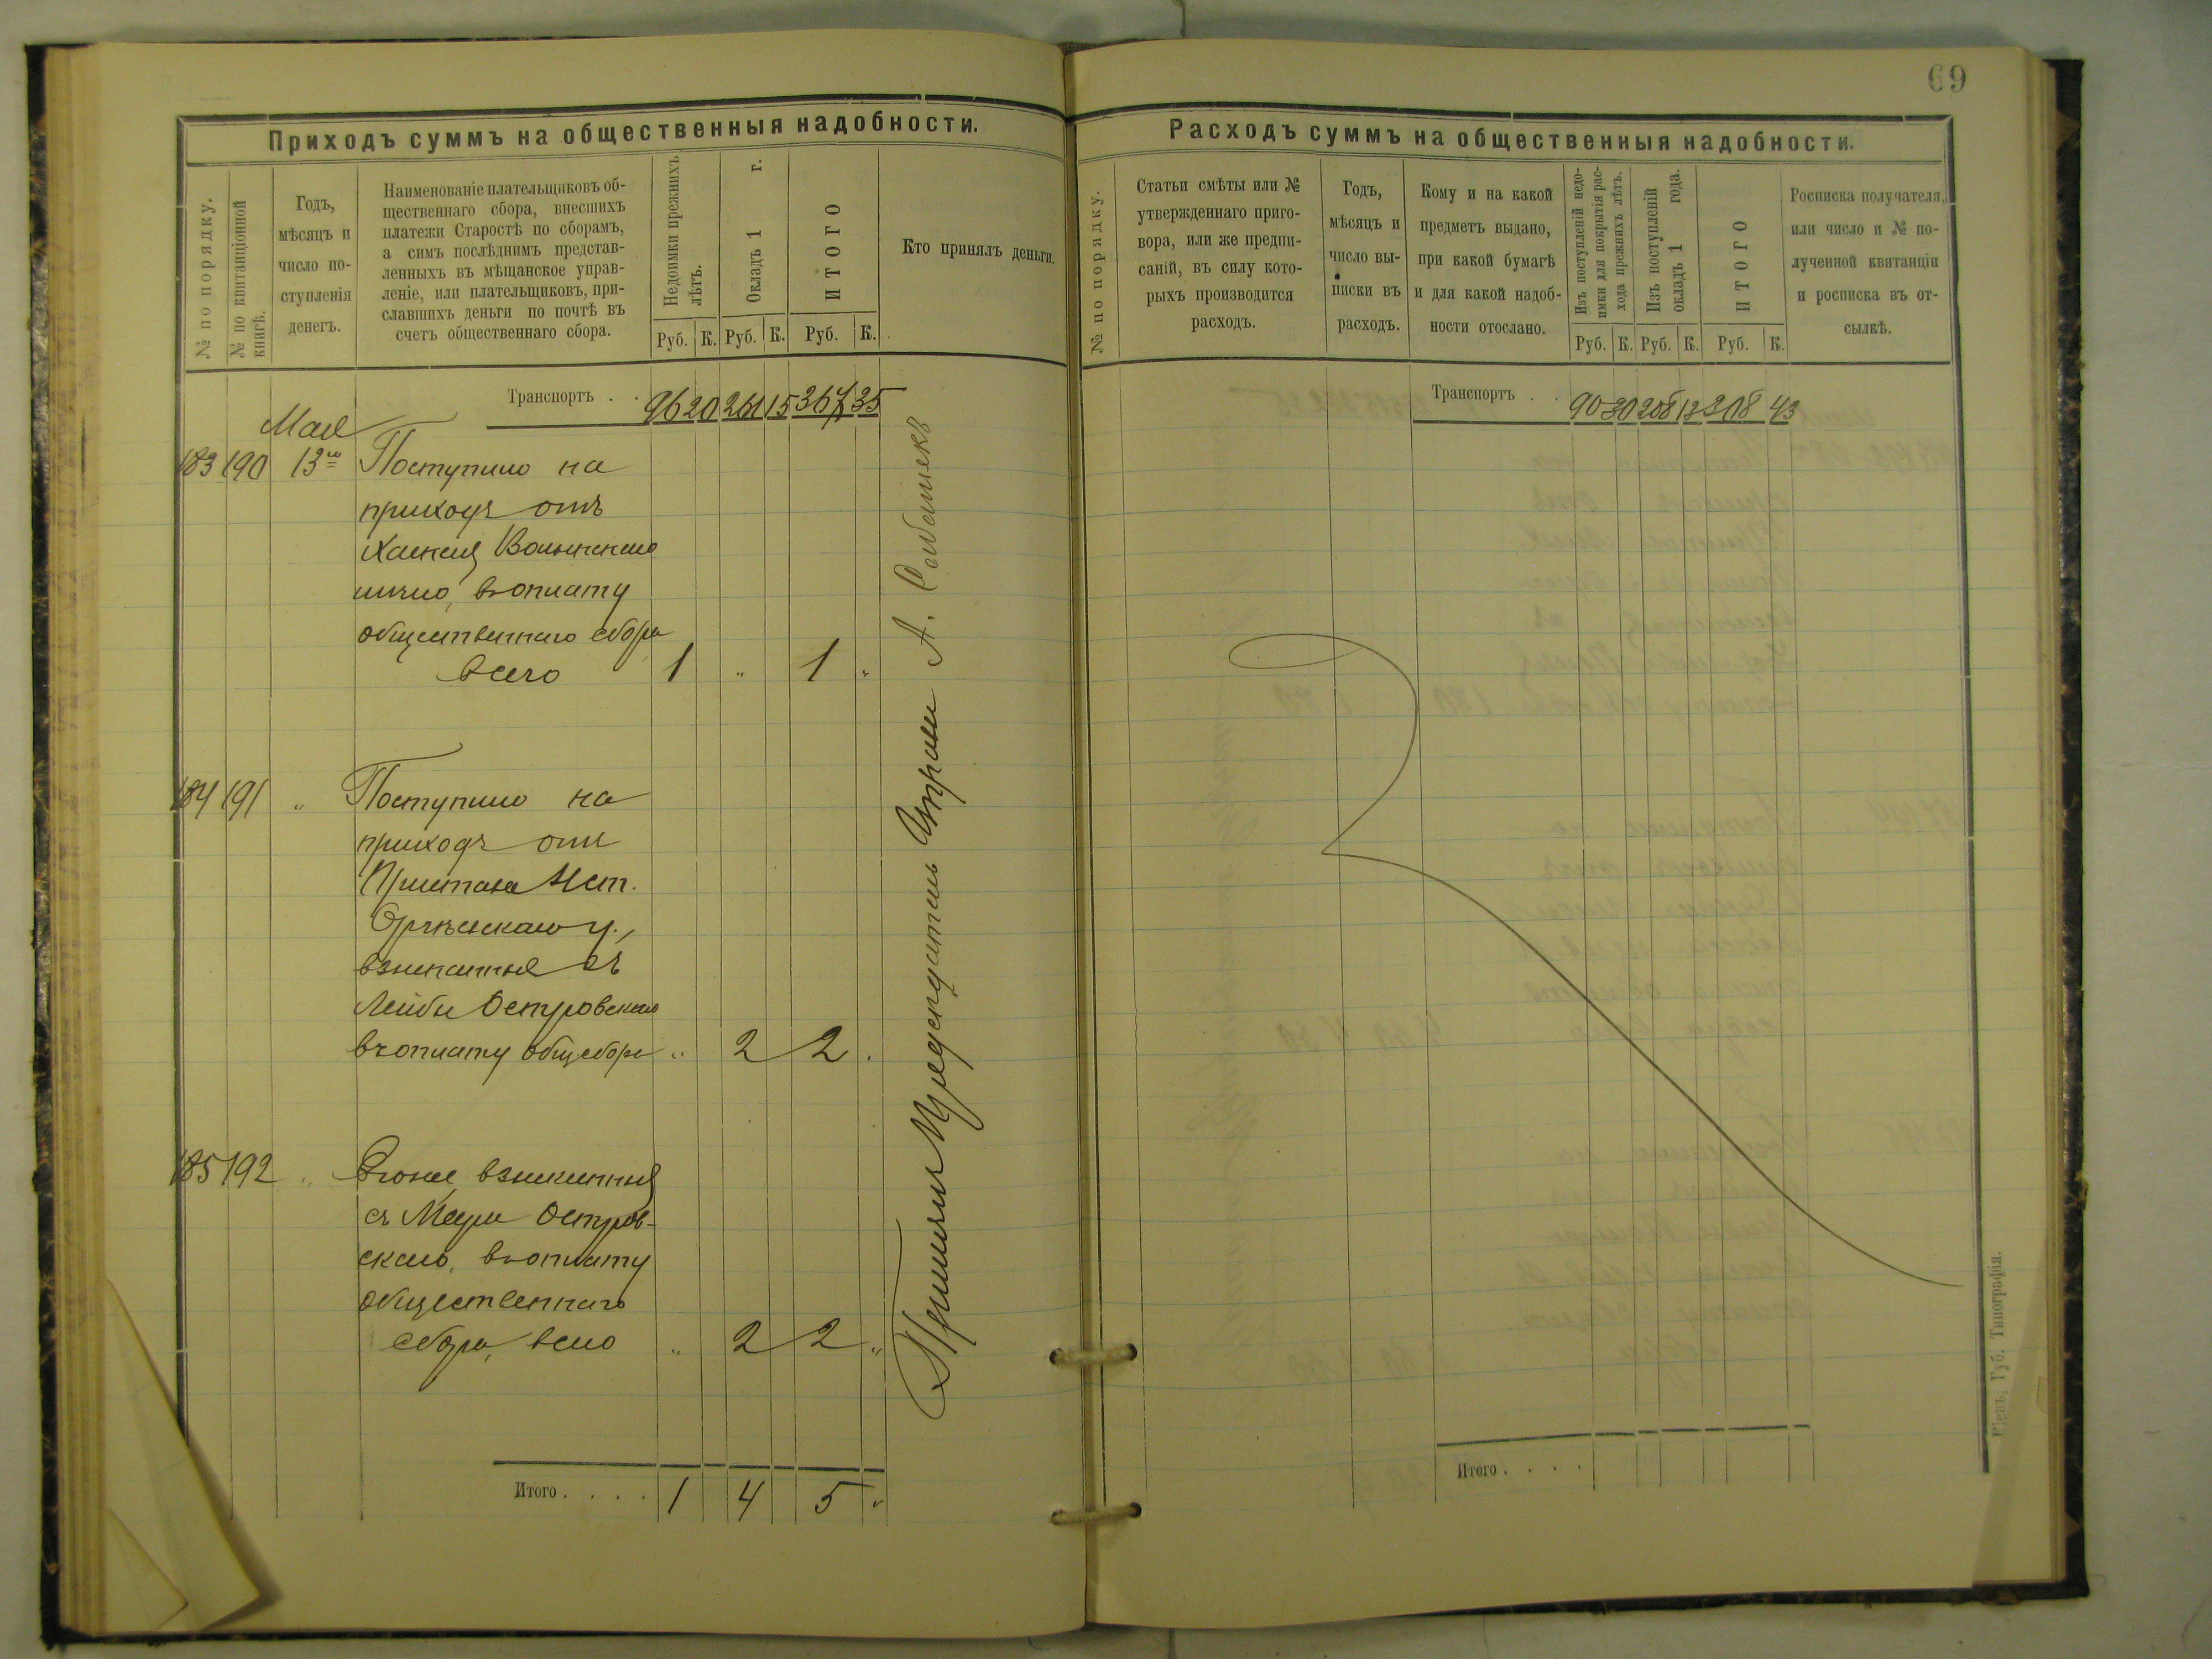 69
Приходъ суммъ на общественныя надобности.
№ по порядку.
№ по квитанціонной
книгѣ.
Годъ,
мѣсяцъ и
число по-
ступленія
денегъ.
Наименованіе плательщиковъ об-
щественнаго сбора, внесшихъ
платежи Старостѣ по сборамъ,
а симъ послѣднимъ представ-
ленныхъ въ мѣщанское управ-
леніе, или плательщиковъ, при-
славшихъ деньги по почтѣ въ
счетъ общественнаго сбора.
Недоимки прежнихъ
лѣтъ.
Окладъ 1 г.
ИТОГО
Кто принялъ деньги.
Руб. К. Руб. К. Руб. К.
Транспортъ . . 96 20 261 15 357 35
Мая
183 190 13го Поступило на
приходъ отъ
Хаскеля
лично, въ оплату
общественнаго сбора
всего 1 " 1 "
184 191 " Поступило на
приходъ отъ
Пристава
взысканные съ
Лейбы Островскаго
въ оплату общ сбора " 2 2 .
185 192 " взысканныя
съ Островъ-
скаго, въ оплату
общественнаго
сбора, всего " 2 2 "
Итого . . . . 1 4 5 "
Принялъ Предсѣдатель Управы А.
Расходъ суммъ на общественныя надобности.
№ по порядку.
Статьи смѣты или №
утвержденнаго приго-
вора, или же предпи-
саній, въ силу кото-
рыхъ производится
расходъ.
Годъ,
мѣсяцъ и
число вы-
писки въ
расходъ.
Кому и на какой
предметъ выдано,
при какой бумагѣ
и для какой надоб-
ности отослано.
Изъ поступленій недо-
имки для покрытія рас-
хода прежнихъ лѣтъ.
Изъ поступленій
окладъ 1 года.
ИТОГО
Росписка получателя,
или число и № по-
лученной квитанціи
и росписка въ от-
сылкѣ.
Руб. К. Руб. К. Руб. К.
Транспортъ . . 90 30 208 13 298 43
Итого . . . .
Кіевъ, Губ. Типографія.